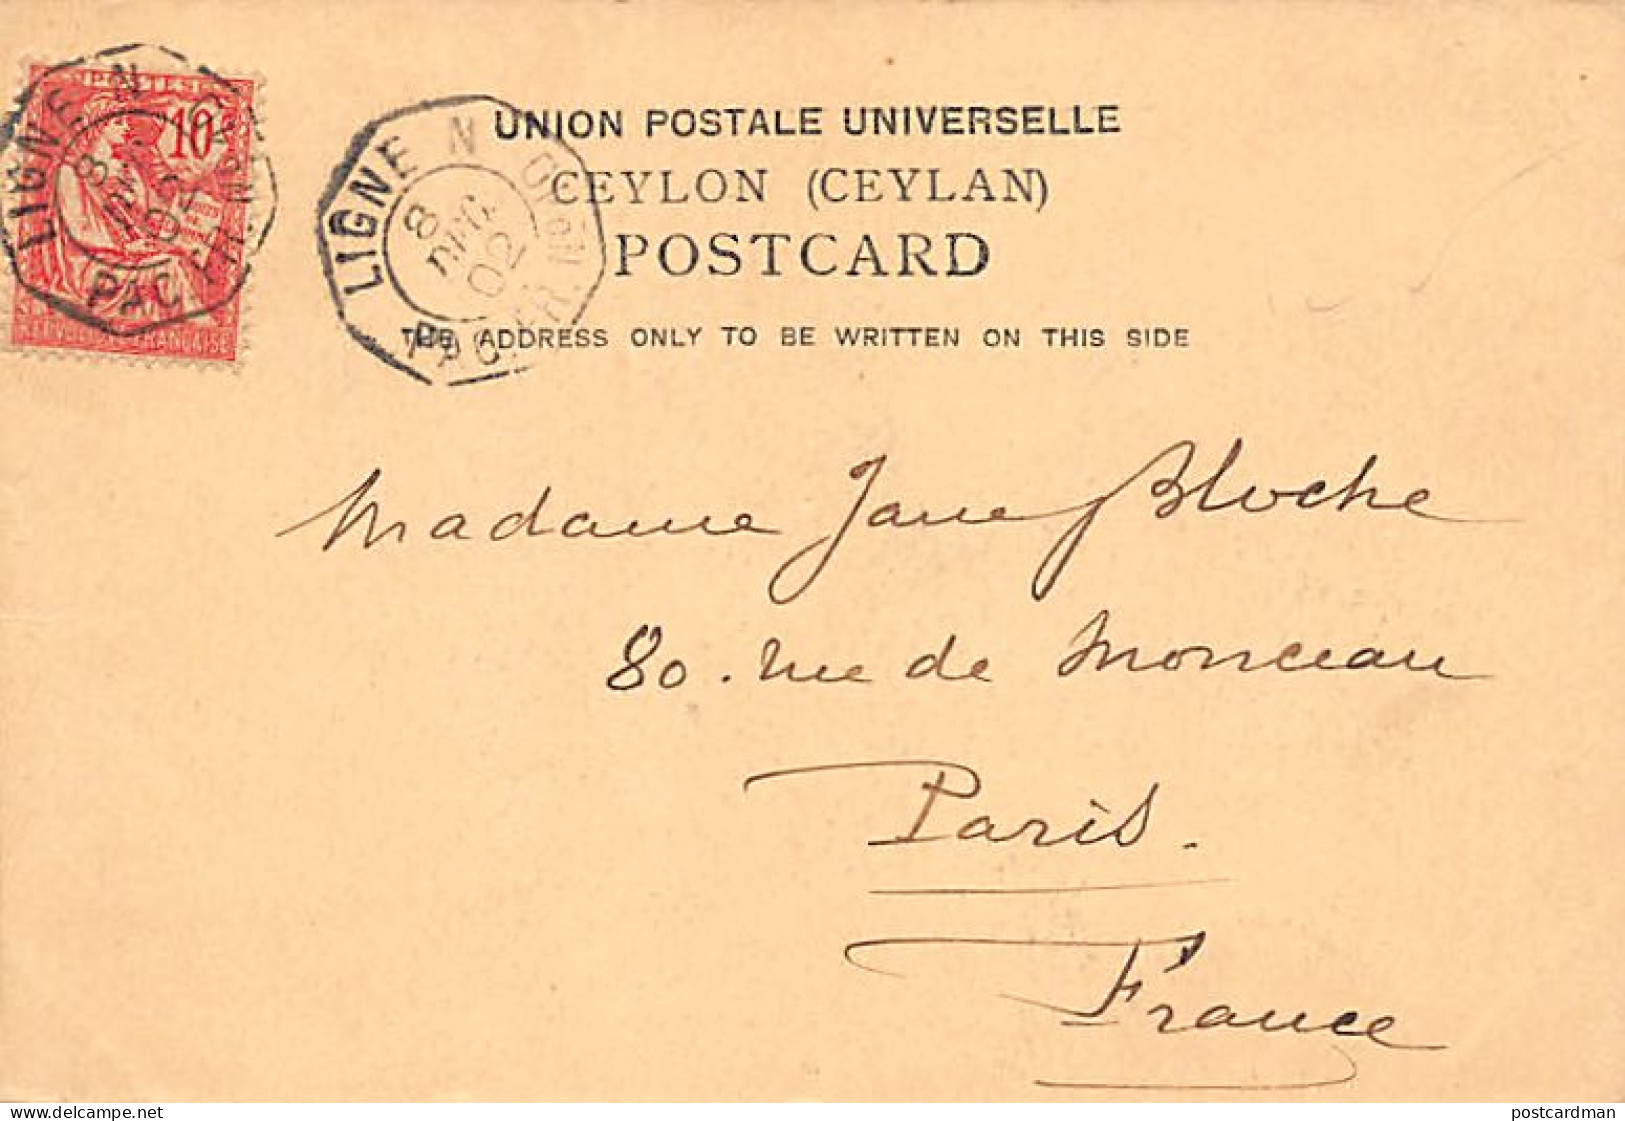 POSTES
10
REPUBLIQUE FRANÇAISE
LIGNE N
PAQ. FR. No
8
DEC
02
LIGNE N
PAQ. FR. No
8
DEC
02
UNION POSTALE UNIVERSELLE
CEYLON (CEYLAN)
POSTCARD
THE ADDRESS ONLY TO BE WRITTEN ON THIS SIDE
Madame Jane Bloche
80. rue de Monceau
Paris.
France
delcampe.net
postcardman